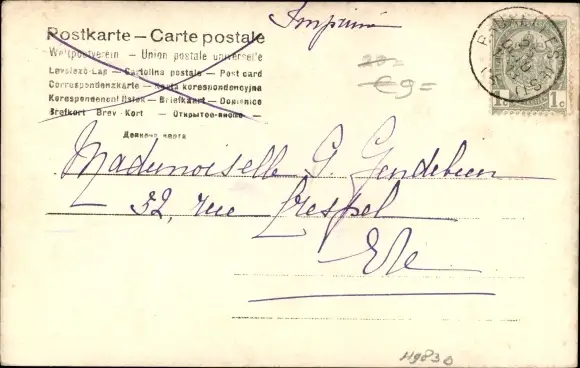 Imprimé
Postkarte – Carte postale
Weltpostverein – Union postale universelle
Levelező-Lap – Cartolina postale – Post card
Correspondenzkarte – Karta korespondencyjna
Korespondenční lístek – Briefkaart – Dopisnice
Brefkort – Brev-Kort – Открытое письмо –
20=
€9=
BRUXELLES
1c 1c
Mademoiselle G. Gendebien
32, rue Crespel
E/v
H983D